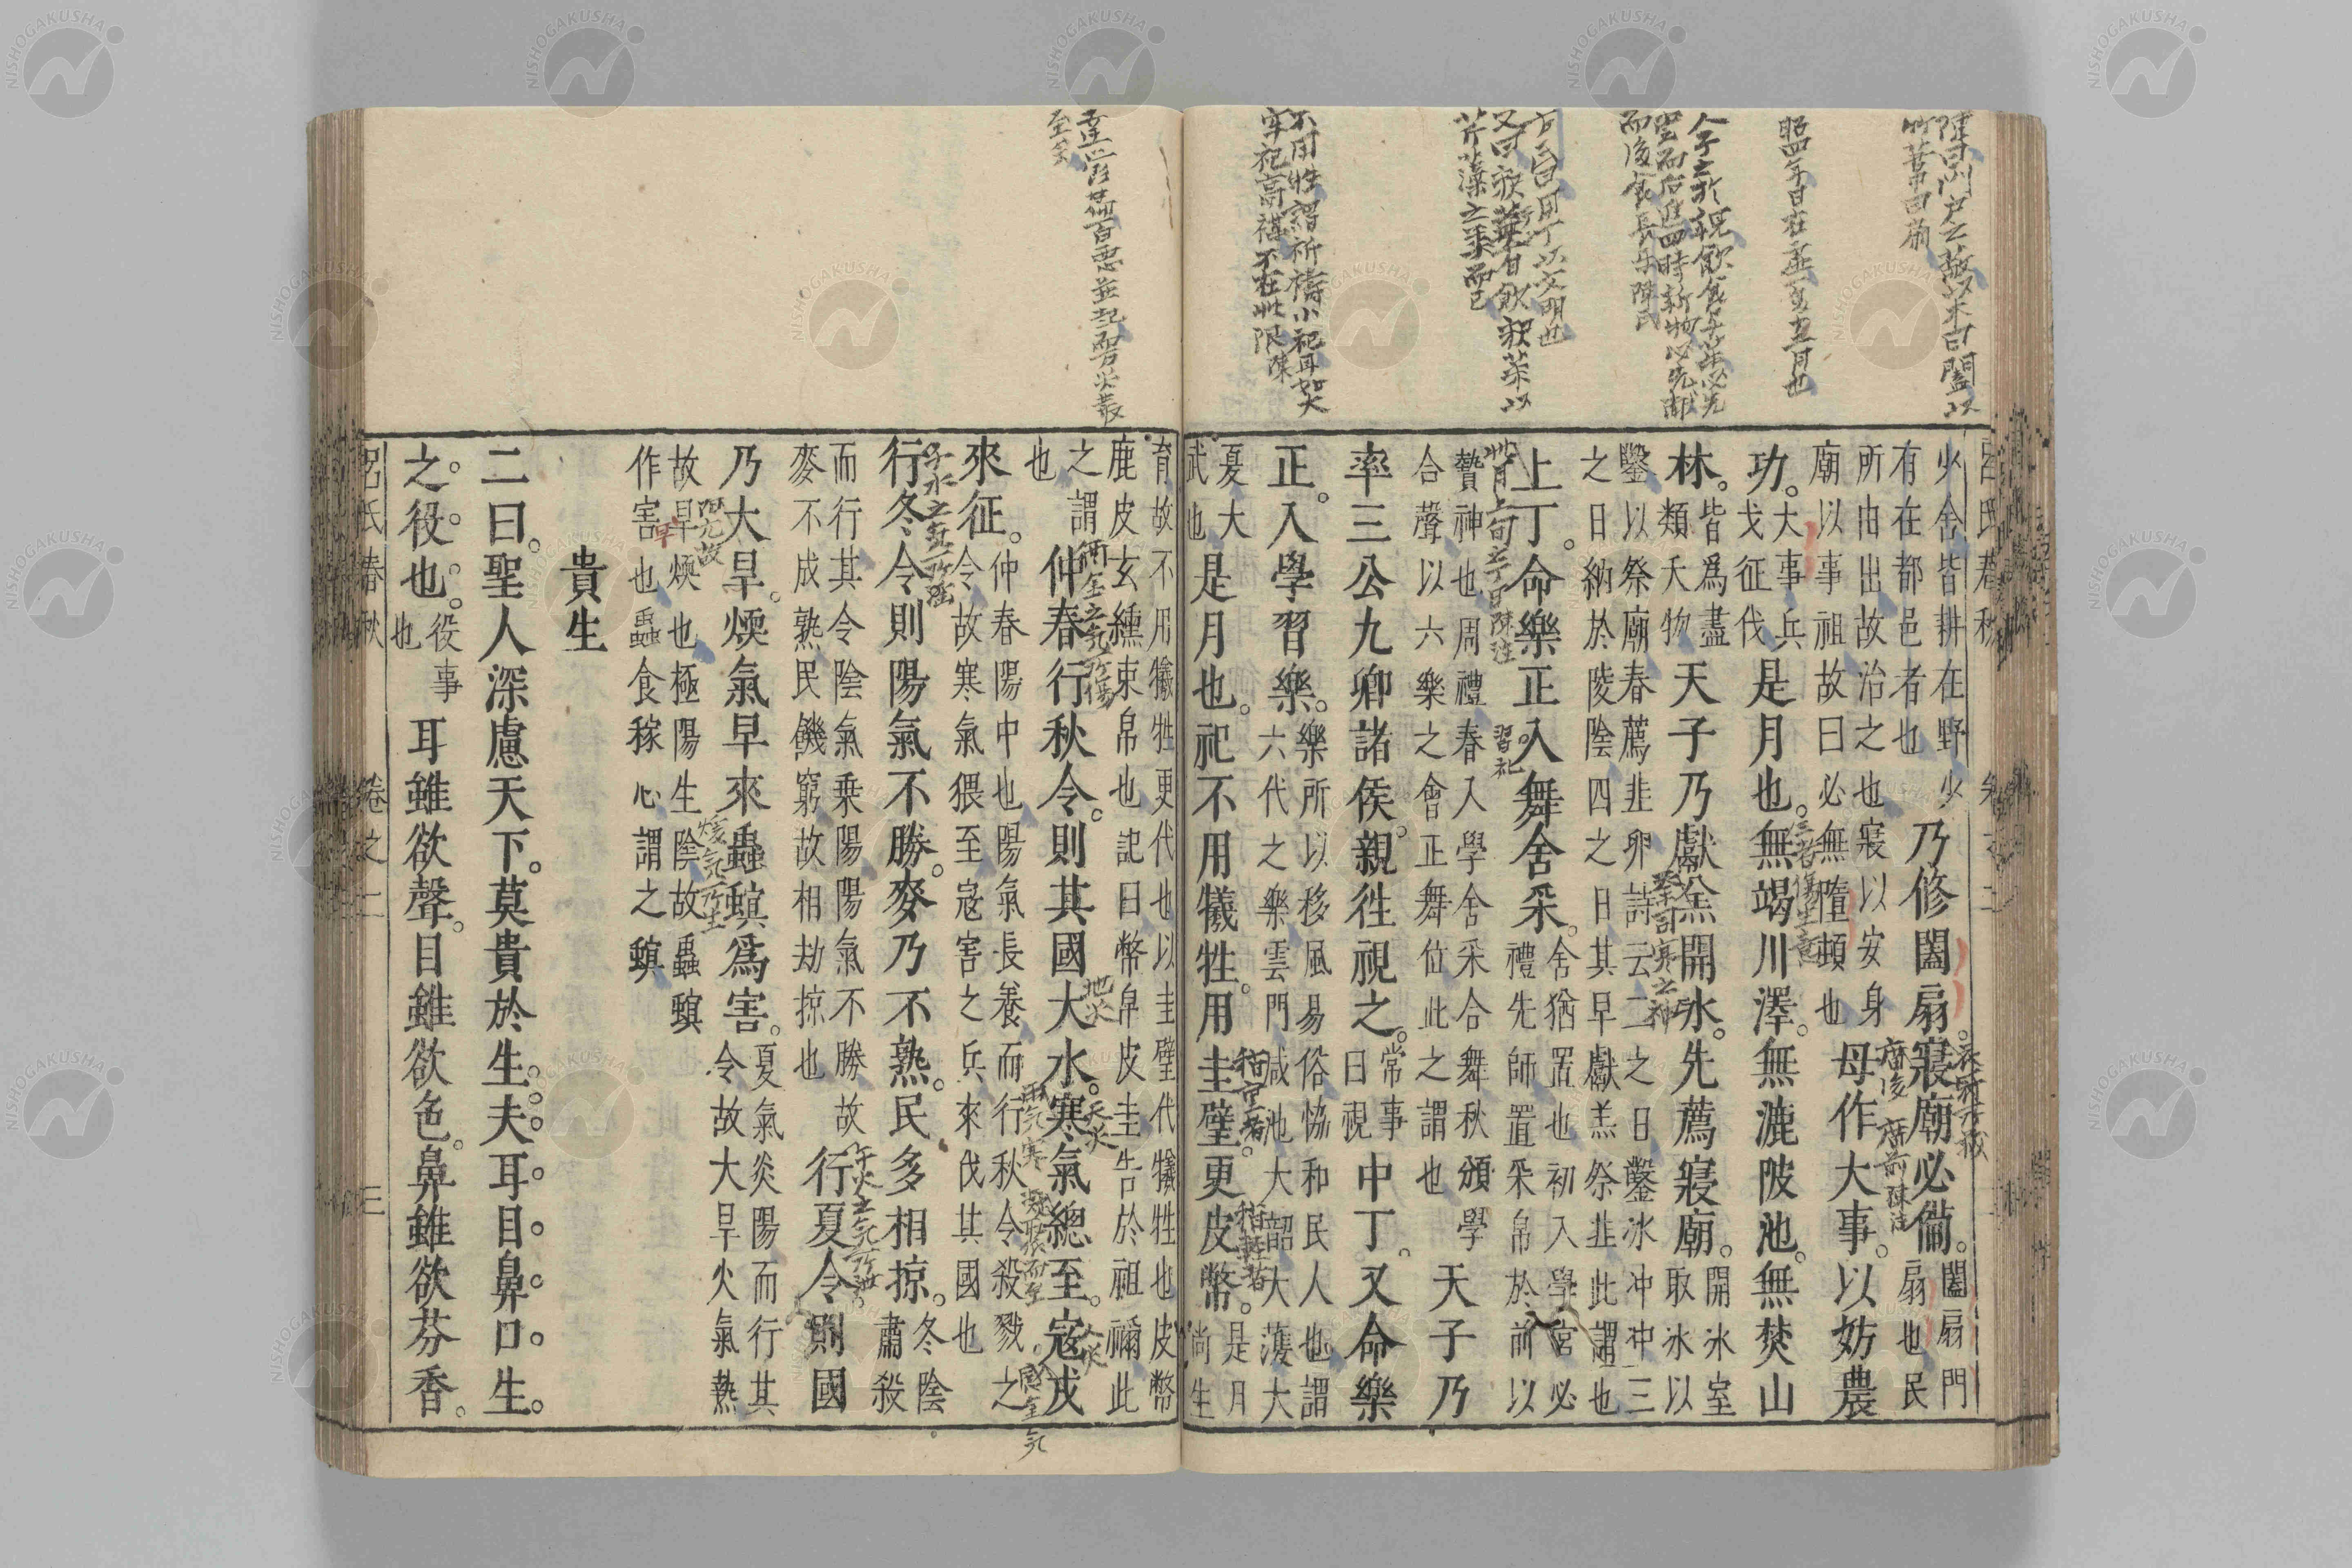 陳曰門戶之蔽以木曰闔以
竹葦曰扇
昭四年日在
人子之於親飲食與藥必先
嘗而后進四時新物必先獻
而後食
又曰
芹藻之菜而已
不用牲謂祈禱小祀耳如大
牢祀高禖不在此限陳
呂氏春秋 卷之二
火舍皆耕在野少
有在都邑者也
乃修闔扇。寢廟必備。
闔扇門
扇也民
所由出故治之也寢以安身
廟以事祖故曰必無墮頓也
母作大事。以妨農
功。
大事兵
戈征伐
是月也。無竭川澤。無漉陂池。無焚山
林。
皆爲盡
類夭物
天子乃獻羔開冰。先薦寢廟。
開冰室
取冰以
鑿以祭廟春薦韭卵詩云二之日鑿冰冲冲三
之日納於陵陰四之日其早獻羔祭韭此謂也
上丁。命樂正入舞舍采。
舍猶置也初入學宮必
禮先師置采帛於前以
贄神也周禮春入學舍采合舞秋頒學
合聲以六樂之會正舞位此之謂也
天子乃
率三公九卿諸侯。親徃視之。
常事
曰視
中丁。又命樂
正。入學習樂。
樂所以移風易俗恊和民人也謂
六代之樂雲門咸池大韶大濩大
夏大
武也
是月也。祀不用犧牲。用圭璧。更皮幣。
是月
尚生
育故不用犧牲更代也以圭璧代犧牲也皮幣
鹿皮玄纁束帛也記曰幣帛皮圭告於祖禰此
之謂
也
仲春行秋令。則其國大水。寒氣總至。寇戎
來征。
仲春陽中也陽氣長養而行秋令殺戮之
令故寒氣猥至寇害之兵來伐其國也
行冬令。則陽氣不勝。麥乃不熟。民多相掠。
冬陰
肅殺
而行其令陰氣乗陽陽氣不勝故
麥不成熟民饑窮故相劫掠也
行夏令則國
乃大旱。煖氣早來。蟲螟爲害。
夏氣炎陽而行其
令故大旱火氣熱
故旱煥也極陽生陰故蟲螟
作害也蟲食稼心謂之螟
貴生
二曰。聖人深慮天下。莫貴於生。夫耳目鼻口。生。
之役也。
役事
也
耳雖欲聲。目雖欲色。鼻雖欲芬香。
呂氏春秋 卷之二 三